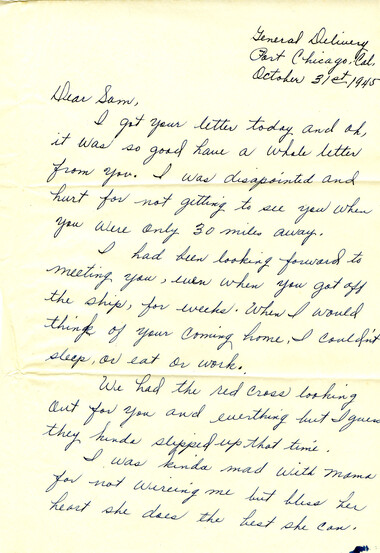 General Delivery
Port Chicago, Cal.
October 31st, 1945
Dear Sam,
I got your letter today and oh,
it was so good have a whole letter
from you. I was disapointed and
hurt for not getting to see you when
you were only 30 miles away.
I had been looking forward to
meeting you, even when you got off
the ship, for weeks. When I would
think of your coming home, I couldn't
sleep, or eat or work.
We had the red cross looking
out for you and everthing but I guess
they kinda slipped up that time.
I was kinda mad with mama
for not wireing me but bless her
heart she does the best she can.